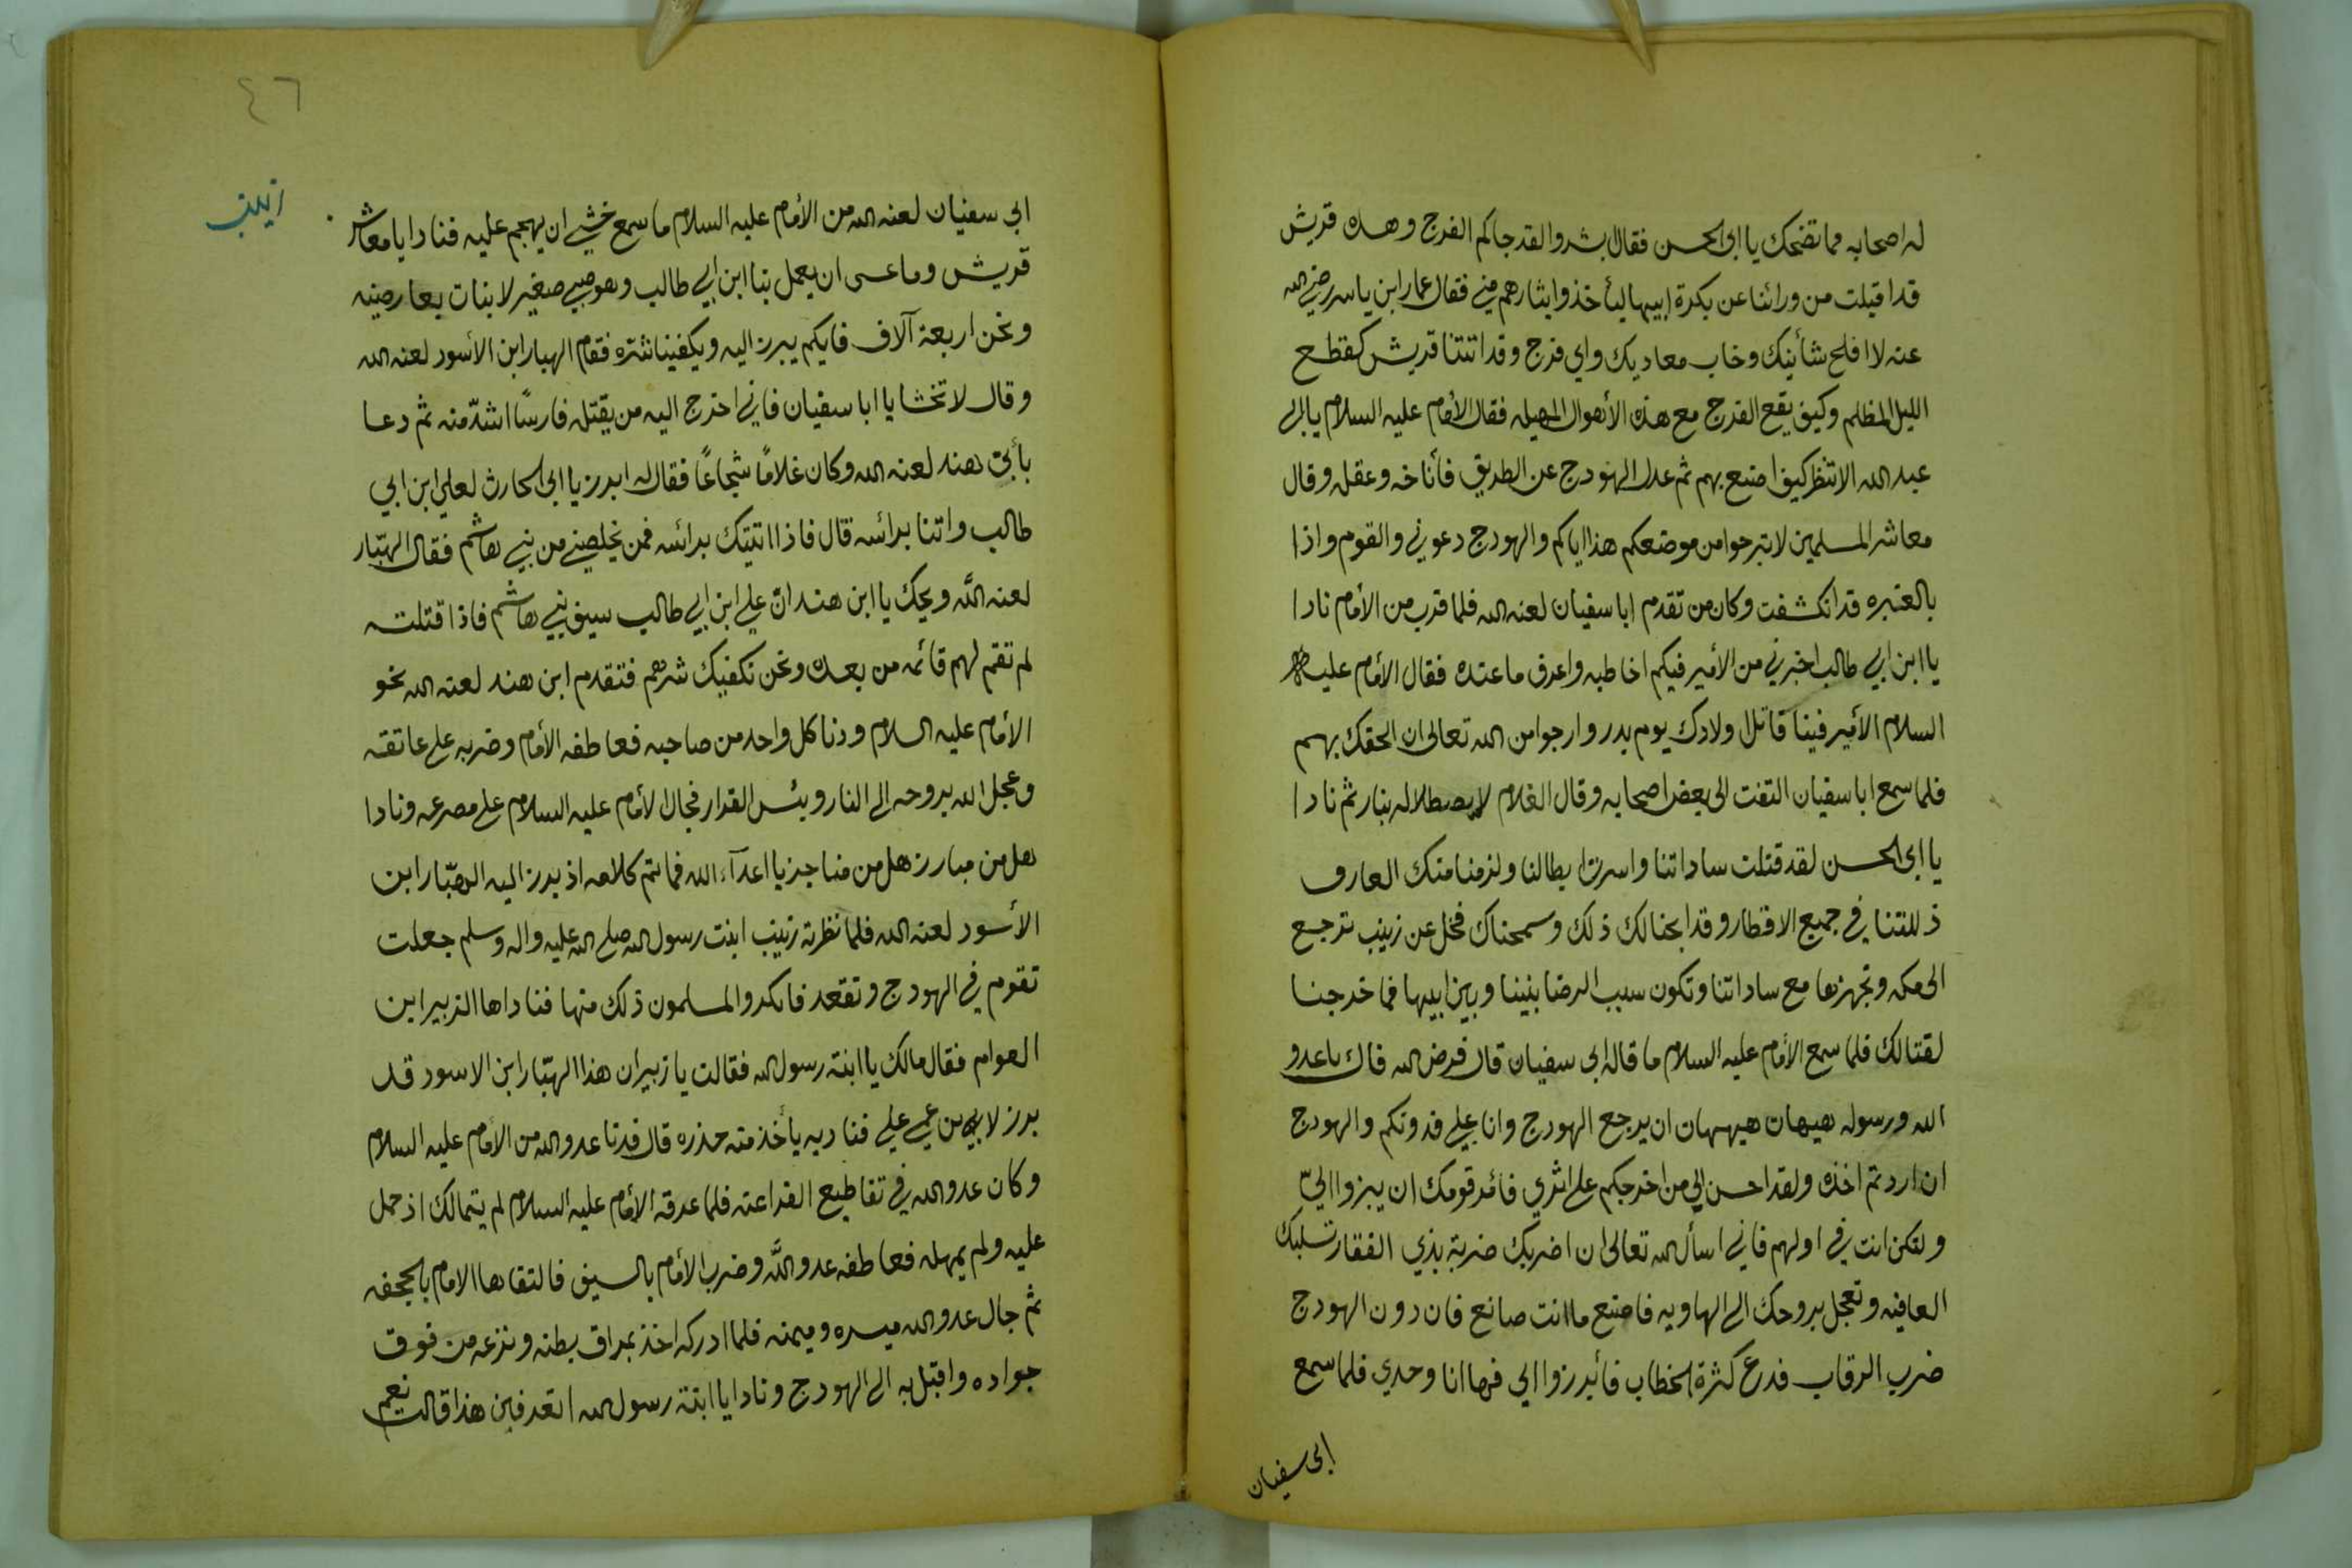 له اصحابه مما تضحك يا ابى الحسن فقال بشروا لقد جاكم الفرج وهذه قريش
قد اقبلت من ورائنا عن بكرة ابيها ليأخذوا بثارهم مني فقال عمار ابن ياسر رضي الله
عنه لا افلح شأنيك وخاب معاديك واي فرج وقد اتتنا قريش كقطع
الليل المظلم وكيف يقع الفرج مع هذه الأهوال المهيله فقال الأمام عليه السلام يا ابي
عبد الله الا تنظر كيف اصنع بهم ثم عدل الهودج عن الطريق فأناخه وعقله وقال
معاشر المسلمين لا تبرحوا من موضعكم هذا اياكم والهودج دعوني والقوم واذا
بالغبره قد انكشفت وكان من تقدم ابا سفيان لعنه الله فلما قرب من الأمام نادا
يا ابن ابي طالب اخبرني من الأمير فيكم اخاطبه واعرف ما عنده فقال الأمام عليه
السلام الأمير فينا قاتل اولادك يوم بدر وارجوا من الله تعالى ان الحقك بهم
فلما سمع ابا سفيان التفت الى بعض اصحابه وقال الغلام لا يصطلا له بنار ثم نادا
يا ابى الحسن لقد قتلت ساداتنا واسرت ابطالنا ولزمنا منك العار وف
ذللتنا في جميع الاقطار وقد ابحنا لك ذلك وسمحناك فخل عن زينب ترجع
الى مكه وتجهزها مع ساداتنا وتكون سبب الرضا بيننا وبين ابيها فما خرجنا
لقتالك فلما سمع الأمام عليه السلام ما قاله ابى سفيان قال فرض الله فاك يا عدو
الله ورسوله هيهات هيهات ان يرجع الهودج وانا علي فدونكم والهودج
ان اردتم اخذه ولقد احسن الي من اخرجكم على اثري فأمر قومك ان يبرزوا اليّ
ولتكن انت في اولهم فاني اسأل الله تعالى ان اضربك ضربة بذي الفقار تسلبك
العافيه وتعجل بروحك الى الهاويه فاصنع ما انت صانع فان دون الهودج
ضرب الرقاب فدع كثرة الخطاب فأبرزوا الي فها انا وحدي فلما سمع
ابى سفيان
٤٦
زينب
ابي سفيان لعنه الله من الأمام عليه السلام ما سمع خشي ان يهجم عليه فنادا يا معاشر
قريش وما عسى ان يعمل بنا ابن ابي طالب وهو صبي صغير لا بنات بعارضيه
ونحن اربعة آلاف فايكم يبرز اليه ويكفينا شره فقام الهبار ابن الأسود لعنه الله
وقال لا تخشا يا ابا سفيان فاني اخرج اليه من يقتله فارسًا اشدّ منه ثم دعا
بأبن هند لعنه الله وكان غلامًا شجاعًا فقال له ابرز يا ابى الحارث لعلي ابن ابي
طالب واتنا برائسه قال فاذا اتيتك برائسه فمن يخلصني من بني هاشم فقال الهبّار
لعنه الله ويحك يا ابن هند انّ علي ابن ابي طالب سيف بني هاشم فاذا قتلته
لم تقم لهم قائمه من بعده ونحن نكفيك شرهم فتقدم ابن هند لعنه الله نحو
الأمام عليه السلام ودنا كل واحد من صاحبه فعاطفه الأمام وضربه على عاتقه
وعجل الله بروحه الى النار وبئس القرار فجال الأمام عليه السلام على مصرعه ونادا
هل من مبارز هل من مناجز يا اعدآء الله فما تم كلامه اذ برز اليه الهبّار ابن
الأسود لعنه الله فلما نظرته زينب ابنت رسول الله صلى الله عليه واله وسلم جعلت
تقوم في الهودج وتقعد فانكروا المسلمون ذلك منها فناداها الزبير ابن
العوام فقال مالك يا ابنة رسول الله فقالت يا زبير ان هذا الهبّار ابن الاسود قد
برز لابن عمي علي فنا ديه يأخذ منه حذره قال فدنا عدو الله من الأمام عليه السلام
وكان عدو الله في تقاطيع الفراعنه فلما عرفه الأمام عليه السلام لم يتمالك اذ حمل
عليه ولم يمهله فعاطفه عدو الله وضرب الأمام بالسيف فالتقاها الامام بالحجفه
ثم جال عدو الله ميسره وميمنه فلما ادركه اخذ بمراق بطنه ونزعه من فوق
جواده واقبل به الى الهودج ونادا يا ابنة رسول الله اتعرفين هذا قالت نعم